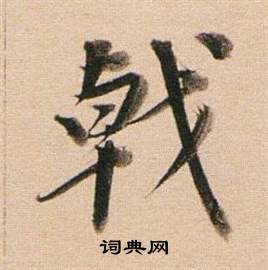 戟
词典网